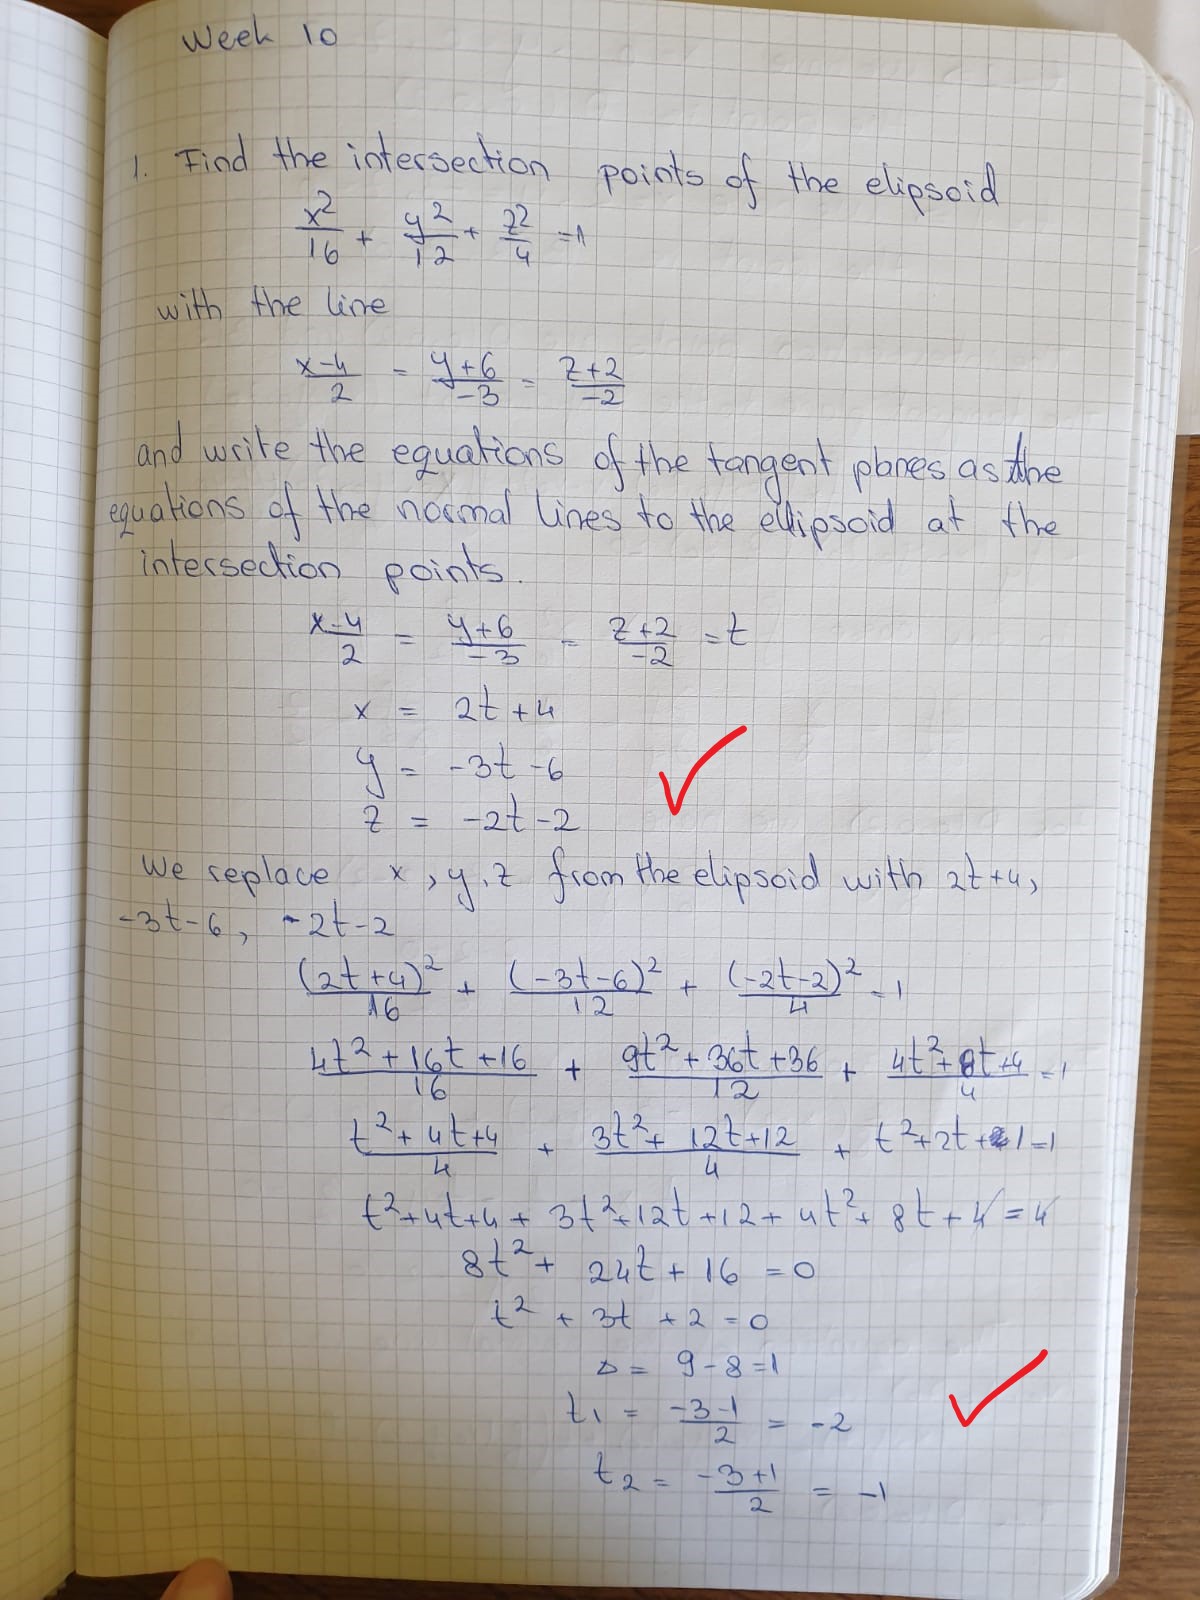 Week 10
1. Find the intersection points of the elipsoid
x²/16 + y²/12 + z²/4 = 1
with the line
(x-4)/2 = (y+6)/-3 = (z+2)/-2
and write the equations of the tangent planes as the
equations of the normal lines to the ellipsoid at the
intersection points.
(x-4)/2 = (y+6)/-3 = (z+2)/-2 = t
x = 2t+4
y = -3t-6
z = -2t-2
We replace x, y, z from the elipsoid with 2t+4,
-3t-6, -2t-2
(2t+4)²/16 + (-3t-6)²/12 + (-2t-2)²/4 = 1
(4t²+16t+16)/16 + (9t²+36t+36)/12 + (4t²+8t+4)/4 = 1
(t²+4t+4)/4 + (3t²+12t+12)/4 + t²+2t+1 = 1
t²+4t+4 + 3t²+12t+12+4t²+8t+4 = 4
8t² + 24t + 16 = 0
t² + 3t + 2 = 0
Δ = 9-8 = 1
t₁ = (-3-1)/2 = -2
t₂ = (-3+1)/2 = -1